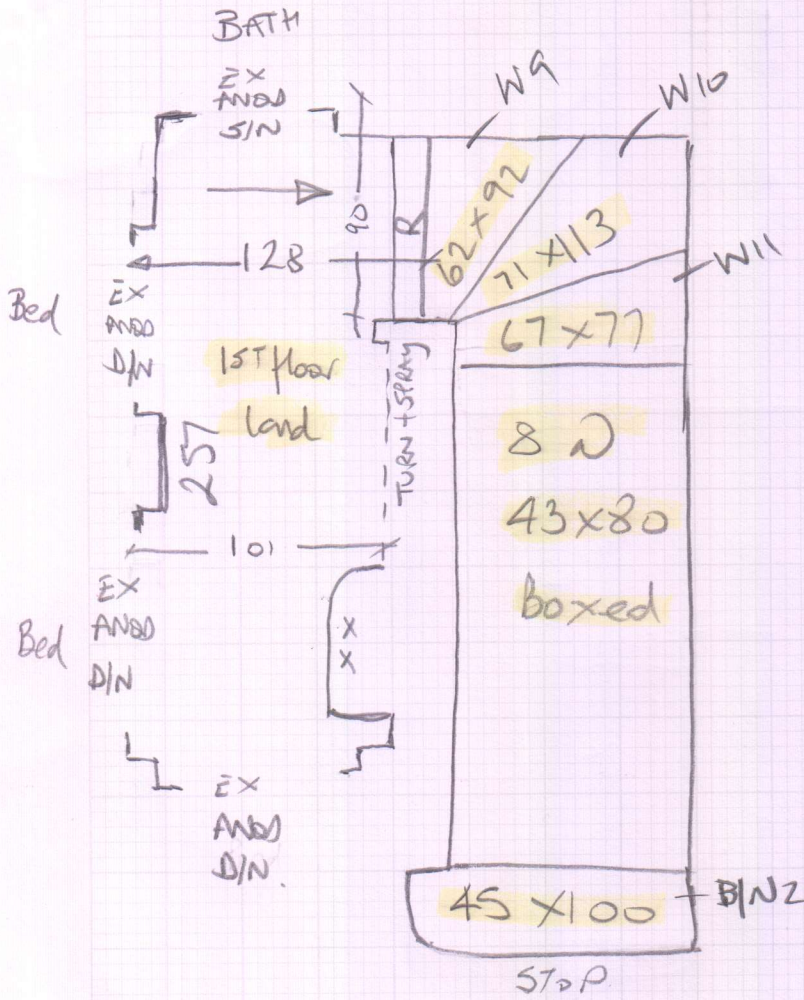 BATH
EX
ANOD
S/N
W9
W10
90
R
62 x 92
71 x 113
W11
128
Bed
EX
ANOD
D/N
1ST floor
Land
67 x 77
TURN + SPRAY
257
8 N
43 x 80
Boxed
101
Bed
EX
ANOD
D/N
X
X
EX
ANOD
D/N.
45 x 100
B/N2
STOP